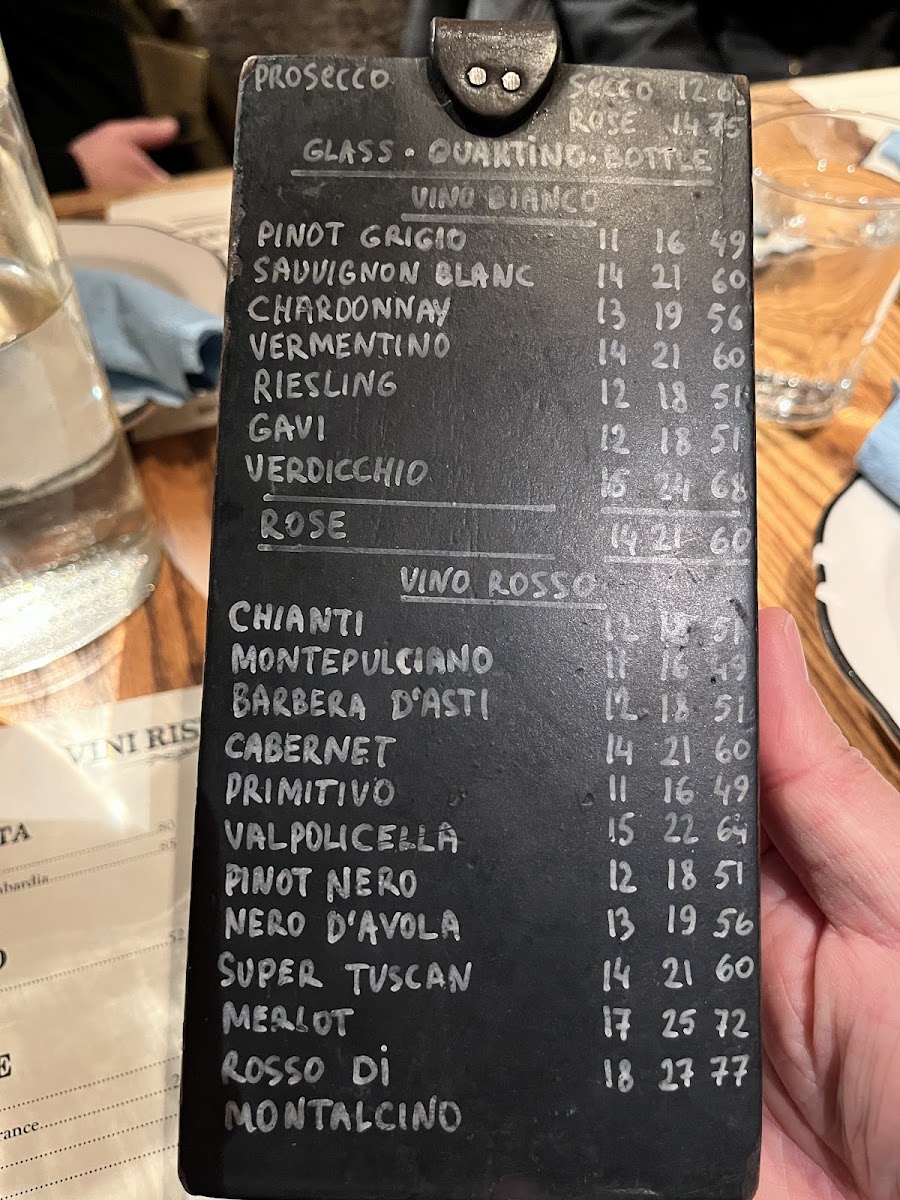 PROSECCO SECCO 12
ROSE 14 75
GLASS · QUARTINO · BOTTLE
VINO BIANCO
PINOT GRIGIO 11 16 49
SAUVIGNON BLANC 14 21 60
CHARDONNAY 13 19 56
VERMENTINO 14 21 60
RIESLING 12 18 51
GAVI 12 18 51
VERDICCHIO 16 24 68
ROSE 14 21 60
VINO ROSSO
CHIANTI 12 18 51
MONTEPULCIANO 11 16 49
BARBERA D'ASTI 12 18 51
CABERNET 14 21 60
PRIMITIVO 11 16 49
VALPOLICELLA 15 22 64
PINOT NERO 12 18 51
NERO D'AVOLA 13 19 56
SUPER TUSCAN 14 21 60
MERLOT 17 25 72
ROSSO DI 18 27 77
MONTALCINO
VINI RIS
TA